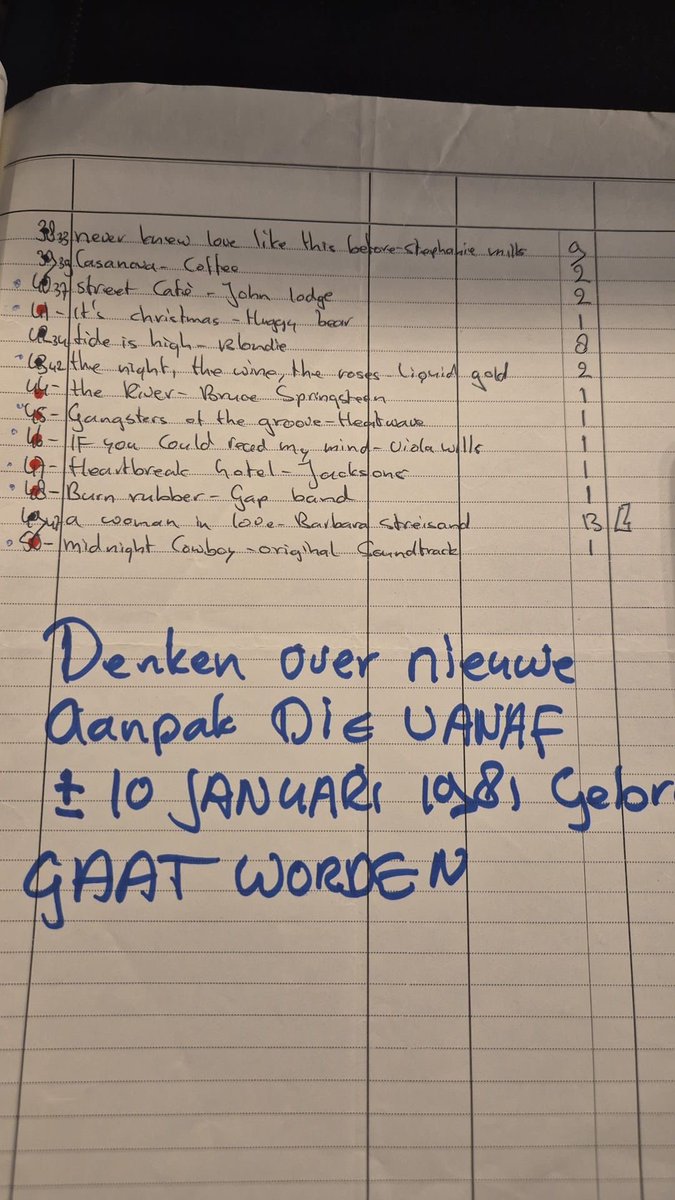 38 33 never knew love like this before - Stephanie mills 9
39 39 Casanova - Coffee 2
40 37 street Cafè - John lodge 2
41 - It's christmas - Huggy bear 1
42 34 tide is high - Blondie 8
43 42 the night, the wine, the roses - liquid gold 2
44 - the River - Bruce Springsteen 1
45 - Gangsters of the groove - Heatwave 1
46 - IF you Could read my mind - Viola wills 1
47 - Heartbreak hotel - Jacksons 1
48 - Burn rubber - Gap band 1
49 47 a woman in love - Barbara streisand 13
50 - midnight Cowboy - original Soundtrack 1
Denken over nieuwe
aanpak DIE VANAF
± 10 JANUARI 1981 Gebr
GAAT WORDEN